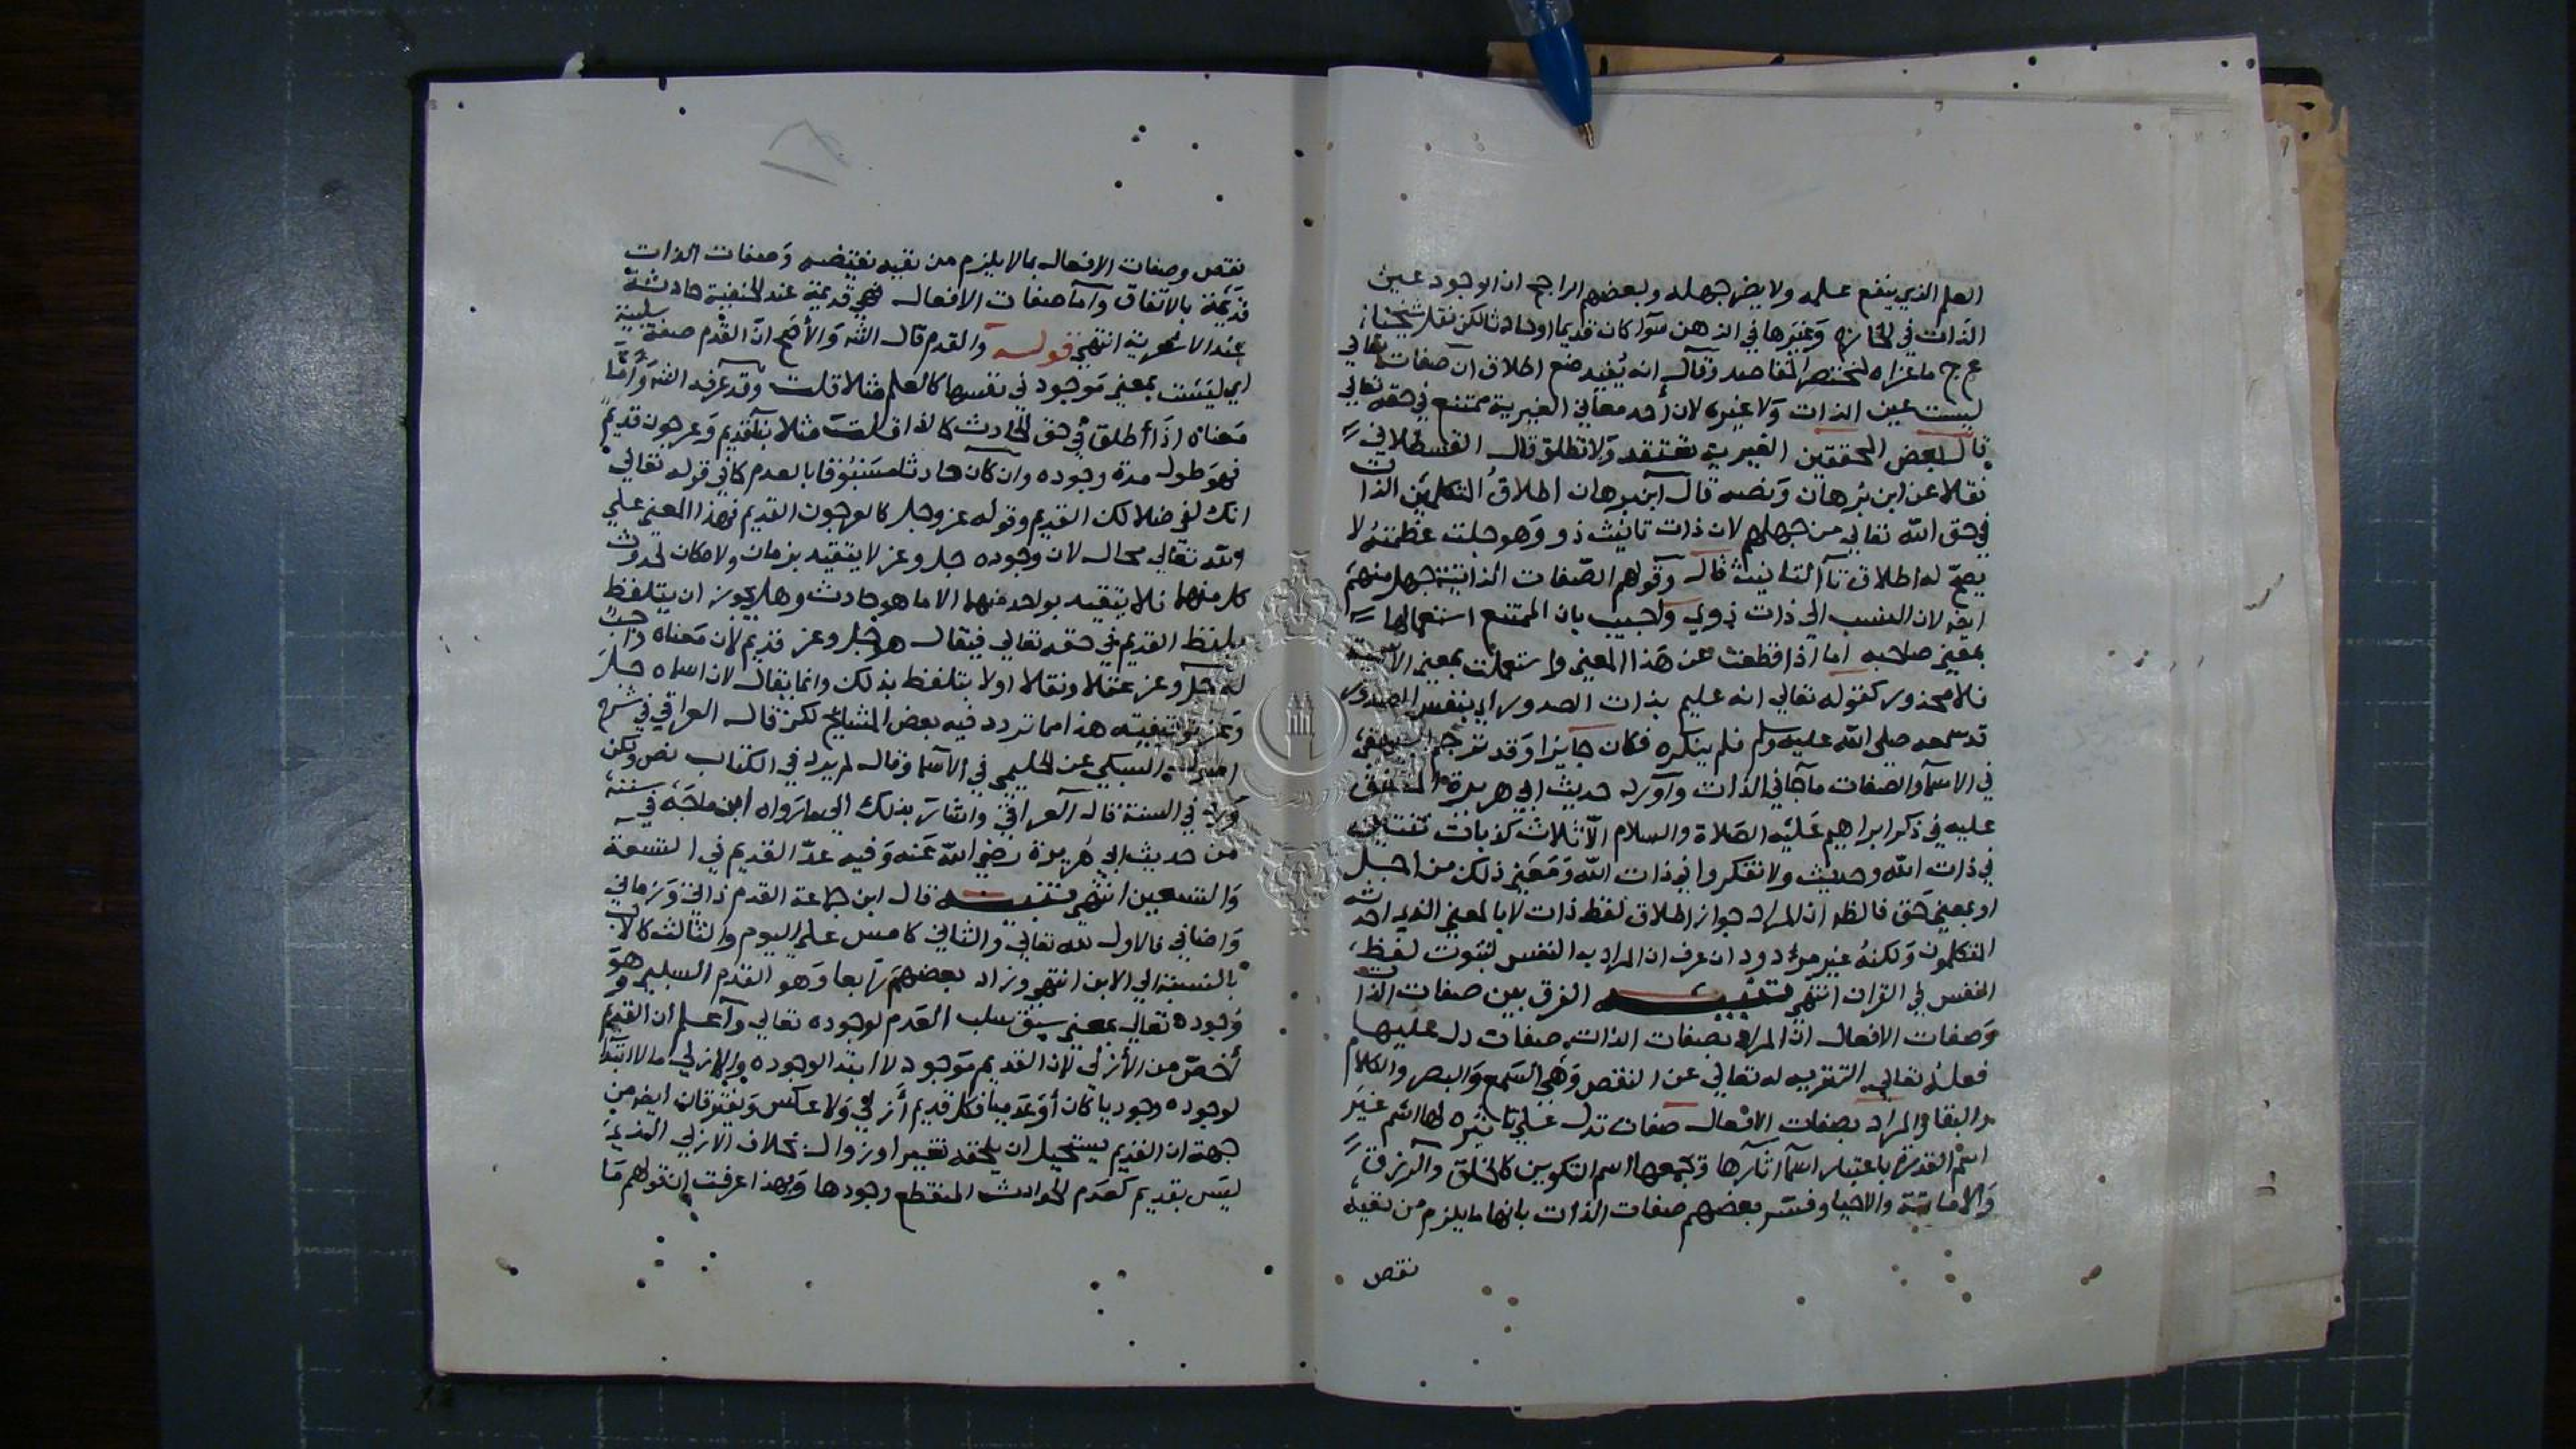 العلم الذي ينفع علمه ولا يضر جهله وبعضهم الراجح ان الوجود عين
الذات في الخارج وغيرها في الذهن سوا كان قديما او حادثا لكن نقل شيخنا
عج ما عزاه لمختصر المقاصد وقال انه يفيد منع اطلاق ان صفات تعالي
ليست عين الذات ولا غيره لان أحد معاني الغيرية ممتنع في حقه تعالي
قال بعض المحققين الغيرية تعتقد ولا تطلق قال القسطلاني
نقلا عن ابن برهان ونصه قال ابن برهان اطلاق المتكلمين الذات
في حق الله تعالي من جهلهم لان ذات تانيث ذو وهو جلت عظمته لا
يصح له اطلاق تا التانيث قال وقولهم الصفات الذاتية جهل منهم
ايضا لان النسب الي ذات ذوي واجيب بان الممتنع استعمالها
بمعني صاحبه اما اذا قطعت عن هذا المعني واستعملت بمعني الاسمية
فلا محذور كقوله تعالي انه عليم بذات الصدور اي بنفس الصدور
قد سمعه صلي الله عليه وسلم فلم ينكره فكان جايزا وقد ترجم البيهقي
في الاسما والصفات ما جا في الذات واورد حديث ابي هريرة المتفق
عليه في ذكر ابراهيم عليه الصلاة والسلام الا ثلاث كذبات ثنتين
في ذات الله وحديث ولا تفكروا في ذات الله ومعني ذلك من أجل
او بمعني حق فالظ ان المراد جواز اطلاق لفظ ذات لا بالمعني الذي احدثه
المتكلمون ولكنه غير مردود ان عرف ان المراد به النفس لثبوت لفظ
النفس في القران انتهي تنبيه الفرق بين صفات الذات
وصفات الافعال ان المراد بصفات الذات صفات دل عليها
فعله تعالي التنزيه له تعالي عن النقص وهي السمع والبصر والكلام
والبقا والمراد بصفات الافعال صفات تدل علي تاثيره لها اسم غير
اسم القدرة باعتبار اسما اثارها وتجمعها اسم التكوين كالخلق والرزق
والاماتة والاحيا وفسر بعضهم صفات الذات بانها ما يلزم من نفيه
نقص
نقص وصفات الافعال بما لا يلزم من نفيه نقيضه وصفات الذات
قديمة بالاتفاق واما صفات الافعال فهي قديمة عند الحنفية حادثة
عند الاشعرية انتهي قوله والقدم قال الش والأصح ان القدم صفة سلبية
اي ليست بمعني موجود في نفسها كالعلم مثلا قلت وقد عرفه الش واما
معناه اذا أطلق في حق الحادث كما اذا قلت مثلا بنا قديم وعرجون قديم
فهو طول مدة وجوده وان كان حادثا مسبوقا بالعدم كما في قوله تعالي
انك لفي ضلالك القديم وقوله عز وجل كالعرجون القديم فهذا المعني علي
الله تعالي محال لان وجوده جل وعز لا يتقيد بزمان ولا مكان لحدوث
كل منهما فلا يتقيد بواحد منهما الا ما هو حادث وهل يجوز ان يتلفظ
بلفظ القديم في حقه تعالي فيقال هو جل وعز قديم لأن معناه واجب
له جل وعز عقلا ونقلا او لا يتلفظ بذلك وانما يقال لان اسماه جل
وعز توقيفيته هذا مما تردد فيه بعض المشايخ لكن قال العراقي في شرح
السبكي عن الحليمي في الاسما وقال لم يرد في الكتاب نص ولكن
ورد في السنة قال العراقي واشار بذلك الي ما رواه ابن ماجه في سننه
من حديث ابي هريرة رضي الله عنه وفيه عد القديم في التسعة
والتسعين انتهي تنبيه قال ابن جماعة القدم ذاتي وزماني
واضافي فالاول لله تعالي والثاني كامس علي اليوم والثالث كالاب
بالنسبة الي الابن انتهي وزاد بعضهم رابعا وهو القدم السلبي وهو
وجوده تعالي بمعني سبق سلب العدم لوجوده تعالي واعلم ان القديم
أخص من الأزلي لان القديم موجود لا ابتدا لوجوده والازلي ما لا ابتدا
لوجوده وجوديا كان أو عدميا فكل قديم أزلي ولا عكس ويفترقان ايضا من
جهة ان القديم يستحيل ان يلحقه تغيير او زوال بخلاف الازلي الذي
ليس بقديم كعدم الحوادث المنقطع وجودها وبهذا عرفت ان قولهم ما